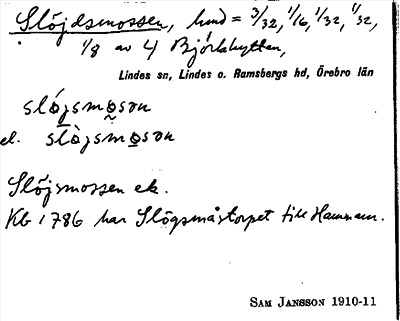 Slöjdsmossen, hmd = 3/32, 1/16, 1/32, 1/32,
1/8 av 4 Björkhyttan,
Lindes sn, Lindes o. Ramsbergs hd, Örebro län
slójsmoson
el. slòjsmoson
Slöjsmossen ek.
Kb 1786 har Slögsmåstorpet till Hammarn.
SAM JANSSON 1910-11